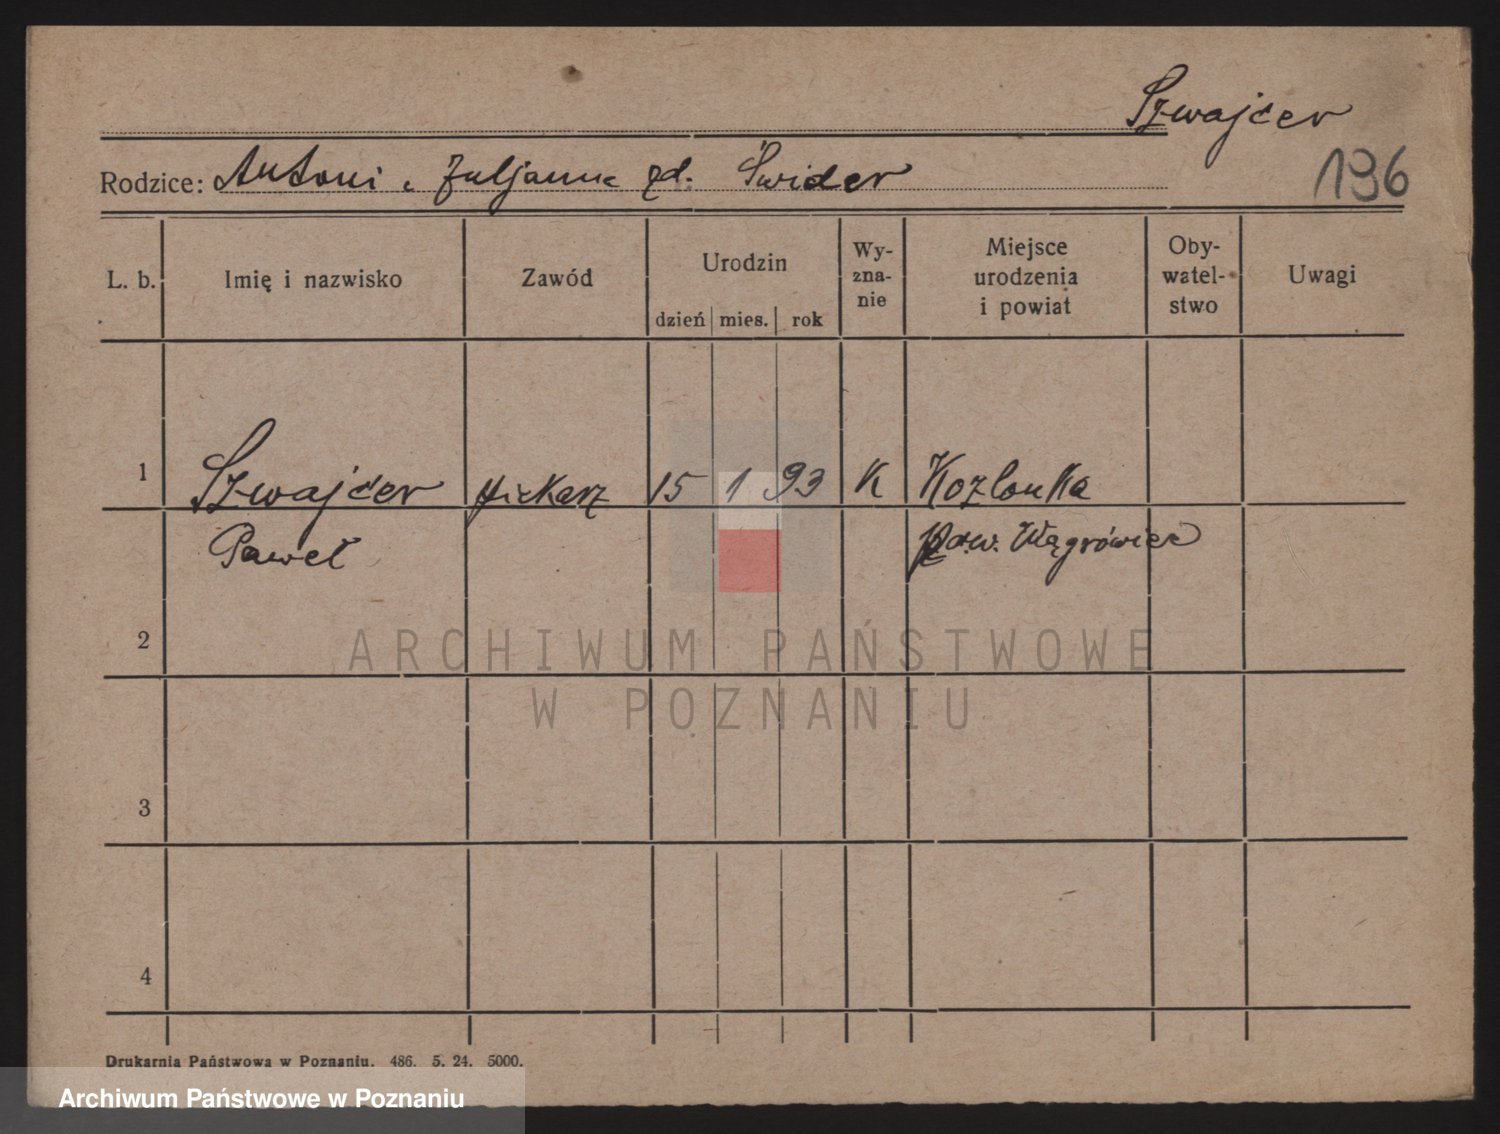 Szwajcer
136
Rodzice: Antoni i Juljanna zd. Świder
L. b. Imię i nazwisko Zawód Urodzin dzień mies. rok Wy-zna-nie Miejsce urodzenia i powiat Oby-watel-stwo Uwagi
1 Szwajcer piekarz 15 1 93 K Kozlonka
Paweł pow. Wągrówiec
2
ARCHIWUM PAŃSTWOWE
W POZNANIU
3
4
Drukarnia Państwowa w Poznaniu. 486. 5. 24. 5000.
Archiwum Państwowe w Poznaniu